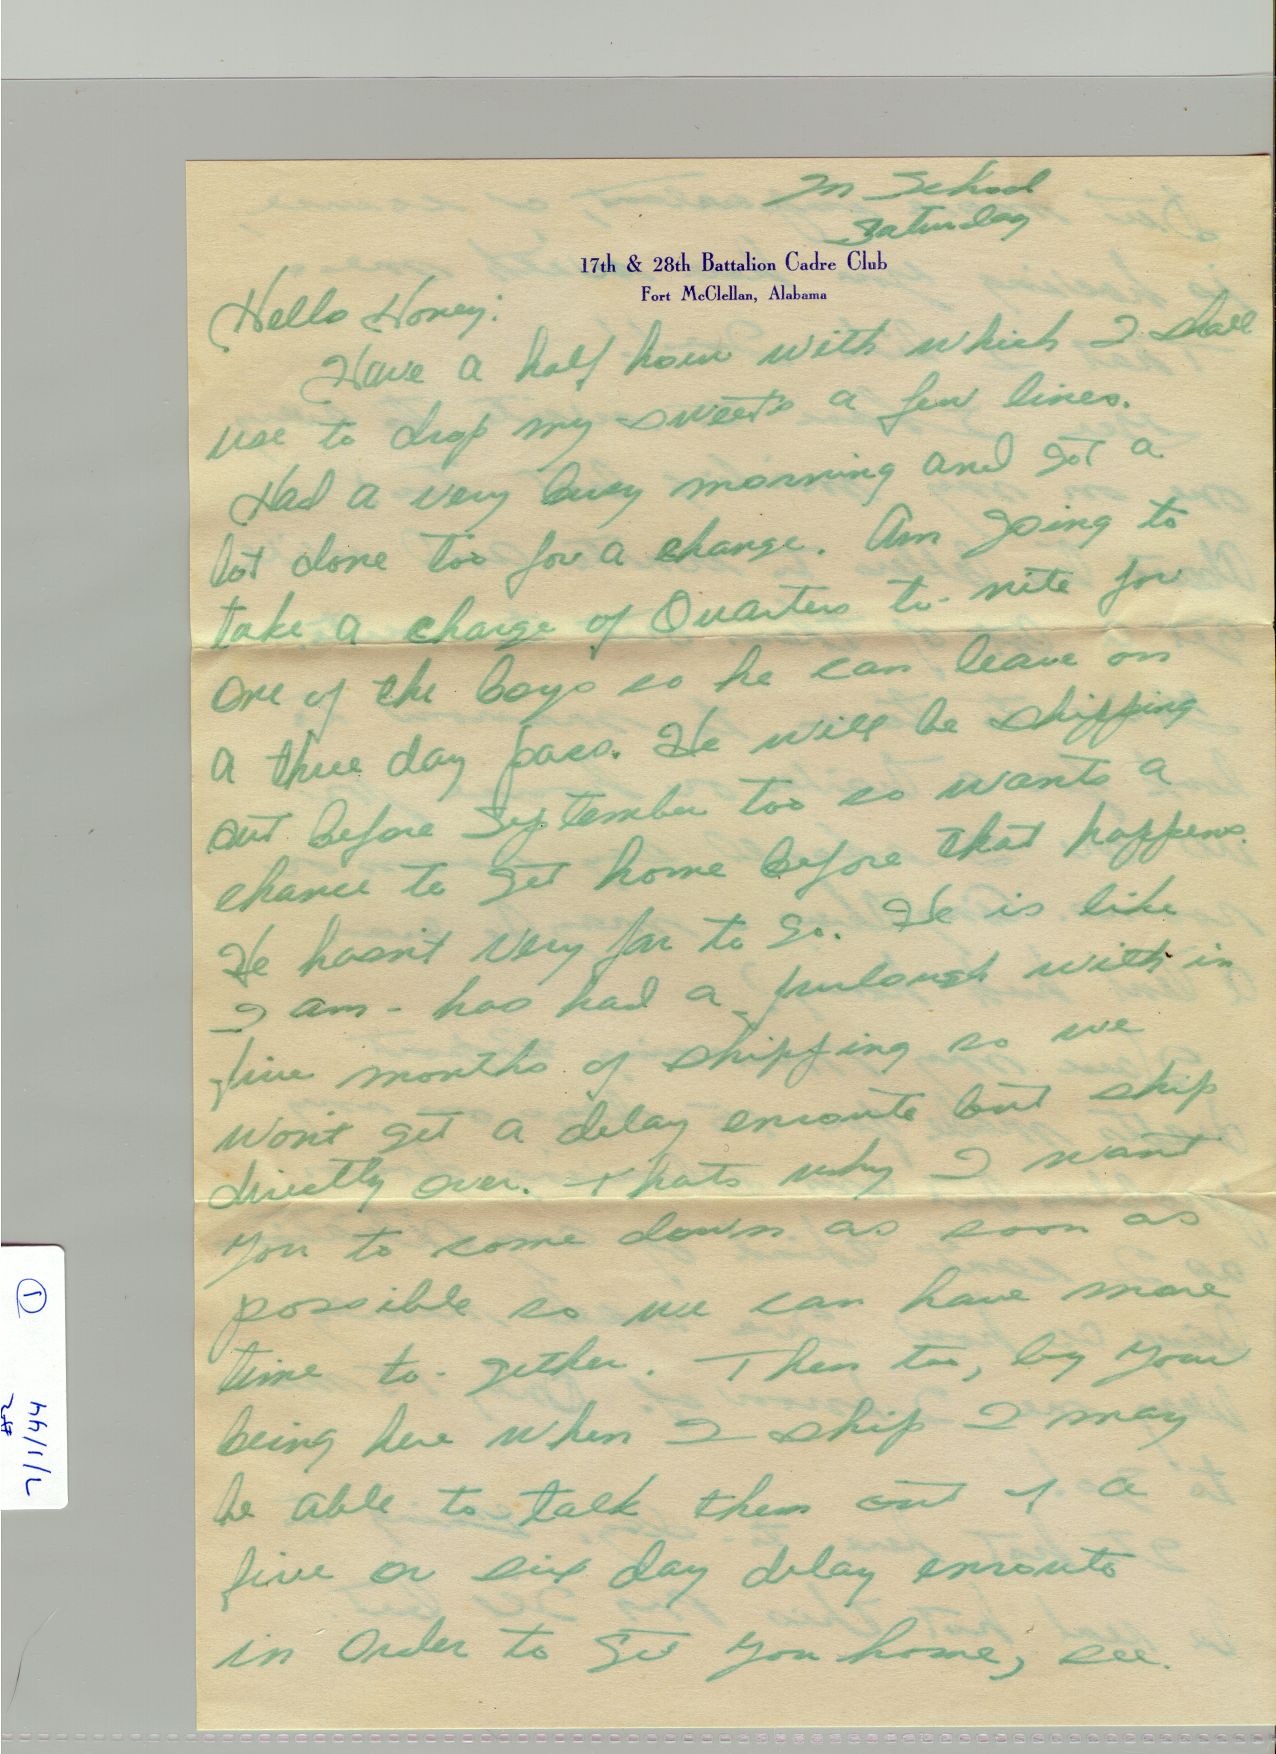 In School
Saturday
17th & 28th Battalion Cadre Club
Fort McClellan, Alabama
Hello Honey:
Have a half hour with which I shall
use to drop my sweets a few lines.
Had a very busy morning and got a
lot done too for a change. Am going to
take a charge of Quarters to-nite for
one of the boys so he can leave on
a three day pass. He will be shipping
out before September too so wants a
chance to get home before that happens.
He hasn't very far to go. He is like
I am - has had a furlough with in
five months of shipping so we
won't get a delay enroute but ship
directly over. Thats why I want
you to come down as soon as
possible so we can have more
time to-gether. Then too, by your
being here when I ship I may
be able to talk them out of a
five or six day delay enroute
in order to get you home, see.
①
7/1/44
#2